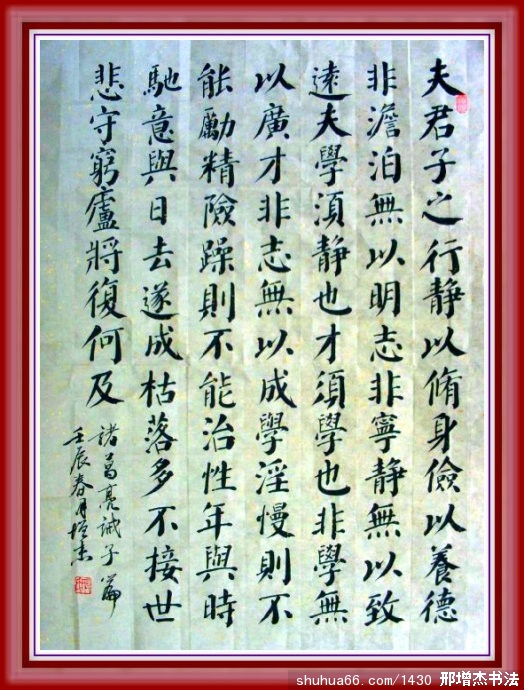 夫君子之行静以脩身儉以養德
非澹泊無以明志非寧静無以致
遠夫學須静也才須學也非學無
以廣才非志無以成學淫慢則不
能勵精險躁則不能治性年與時
馳意與日去遂成枯落多不接世
悲守窮廬將復何及
諸葛亮誡子篇
壬辰春月增杰
shuhua66.com/1430 邢增杰书法